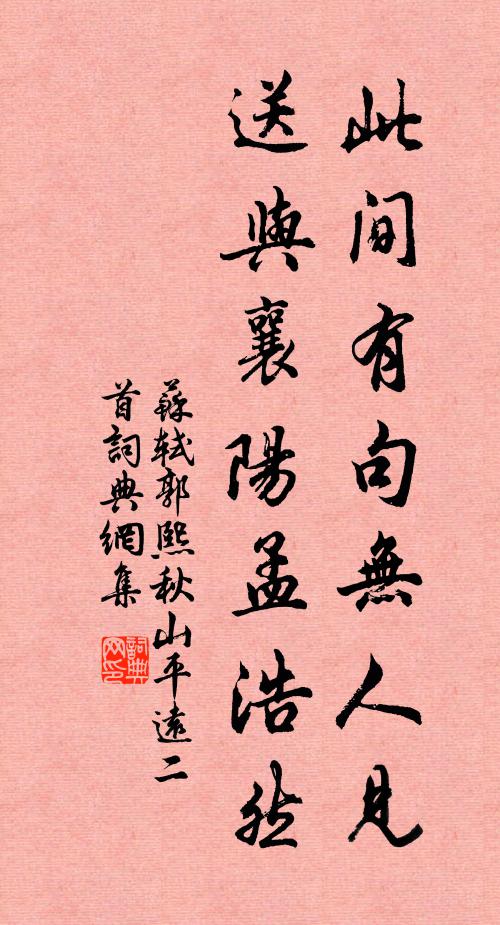 此間有句無人見
送與襄陽孟浩然
蘇軾郭熙秋山平遠二
首詞典網集
詞典
网印